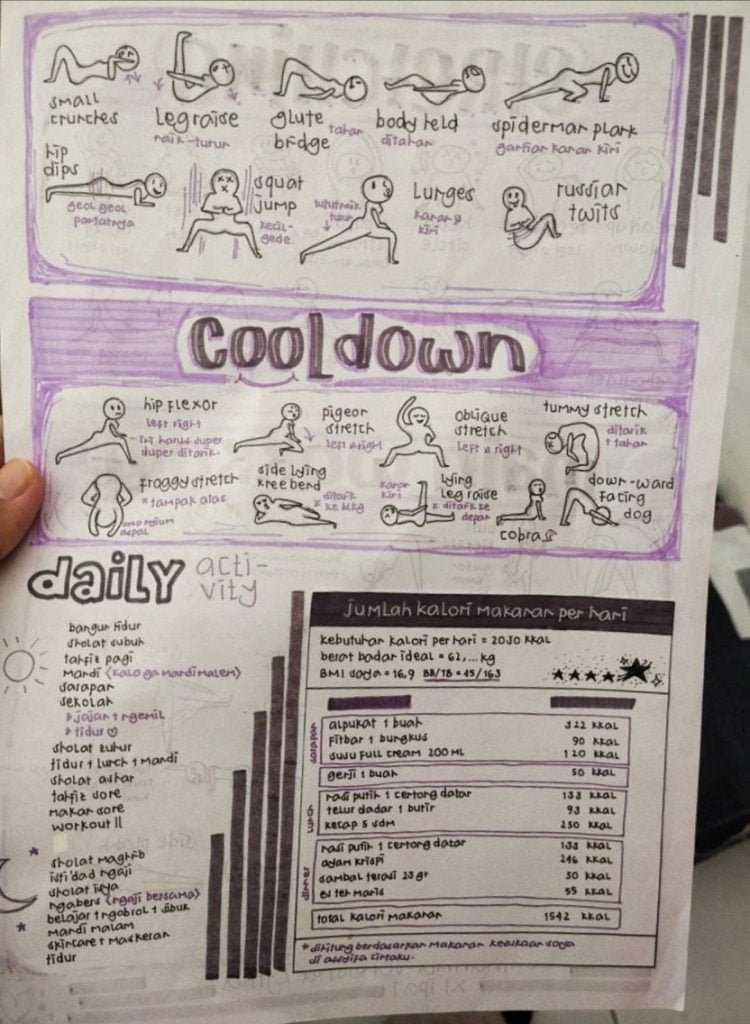 small crunches
Leg raise
naik-turun
glute bridge
tahan
body held
ditahan
spiderman plank
gantian kanan kiri
hip dips
geol geol pantatnya
squat jump
kecil-gede
Lunges
kanan & kiri
russian twits
cooldown
hip flexor
left right
- ini harus duper duper ditarik.
pigeon stretch
left & right
oblique stretch
left & right
tummy stretch
ditarik + tahan
froggy stretch
* tampak atas
side lying knee bend
ditarik ke blkg
lying leg raise
kanan kiri
* ditarik ke depan
cobra
down-ward facing dog
daily acti-
vity
bangun tidur
sholat subuh
tahfiz pagi
mandi (kalo ga mandi malem)
sarapan
sekolah
jajan + ngemil
tidur ♡
sholat zuhur
tidur + lunch + mandi
sholat ashar
tahfiz sore
makan sore
workout !!
sholat maghrib
isti'dad ngaji
sholat isya
ngabers (ngaji bersama)
belajar + ngobrol + sibuk
mandi malam
skincare + maskeran
tidur
jumlah kalori makanan per hari
kebutuhan kalori per hari = 2030 kkal
berat badan ideal = 62,... kg
BMI saya = 16,9 BB/TB = 45/163
sarapan
alpukat 1 buah 322 kkal
fitbar 1 bungkus 90 kkal
susu full cream 200 ml 120 kkal
50 kkal
lunch
nasi putih 1 centong datar 133 kkal
telur dadar 1 butir 93 kkal
kecap 5 sdm 250 kkal
dinner
nasi putih 1 centong datar 133 kkal
ayam krispi 246 kkal
sambal terasi 23 gr 50 kkal
es teh manis 55 kkal
total kalori makanan 1542 kkal
* dihitung berdasarkan makanan kesukaan saya
di assyifa cintaku.